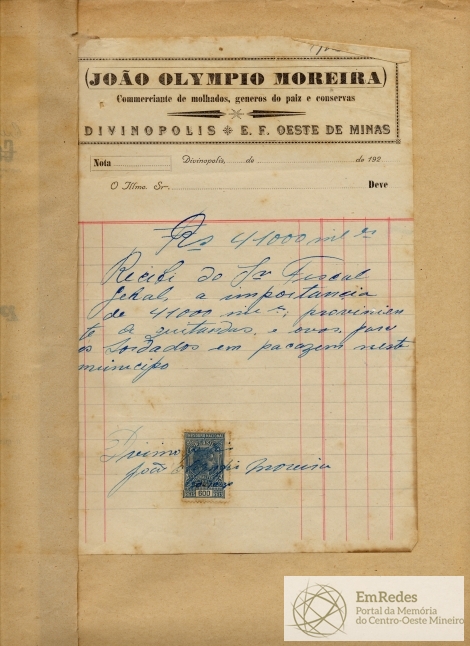 (JOÃO OLYMPIO MOREIRA)
Commerciante de molhados, generos do paiz e conservas
DIVINOPOLIS ※ E. F. OESTE DE MINAS
Nota
Divinopolis, de de 192
O Illmo. Sr. Deve
Rs 41000 mil rs
Recibi do Snr Fiscal
Gehal, a importancia
de 41000 mil rs, provinien
te a quitandas, e ovos, para
os Sordados em pacazem neste
municipo
Divino
João Moreira
600
EmRedes
Portal da Memória
do Centro-Oeste Mineiro